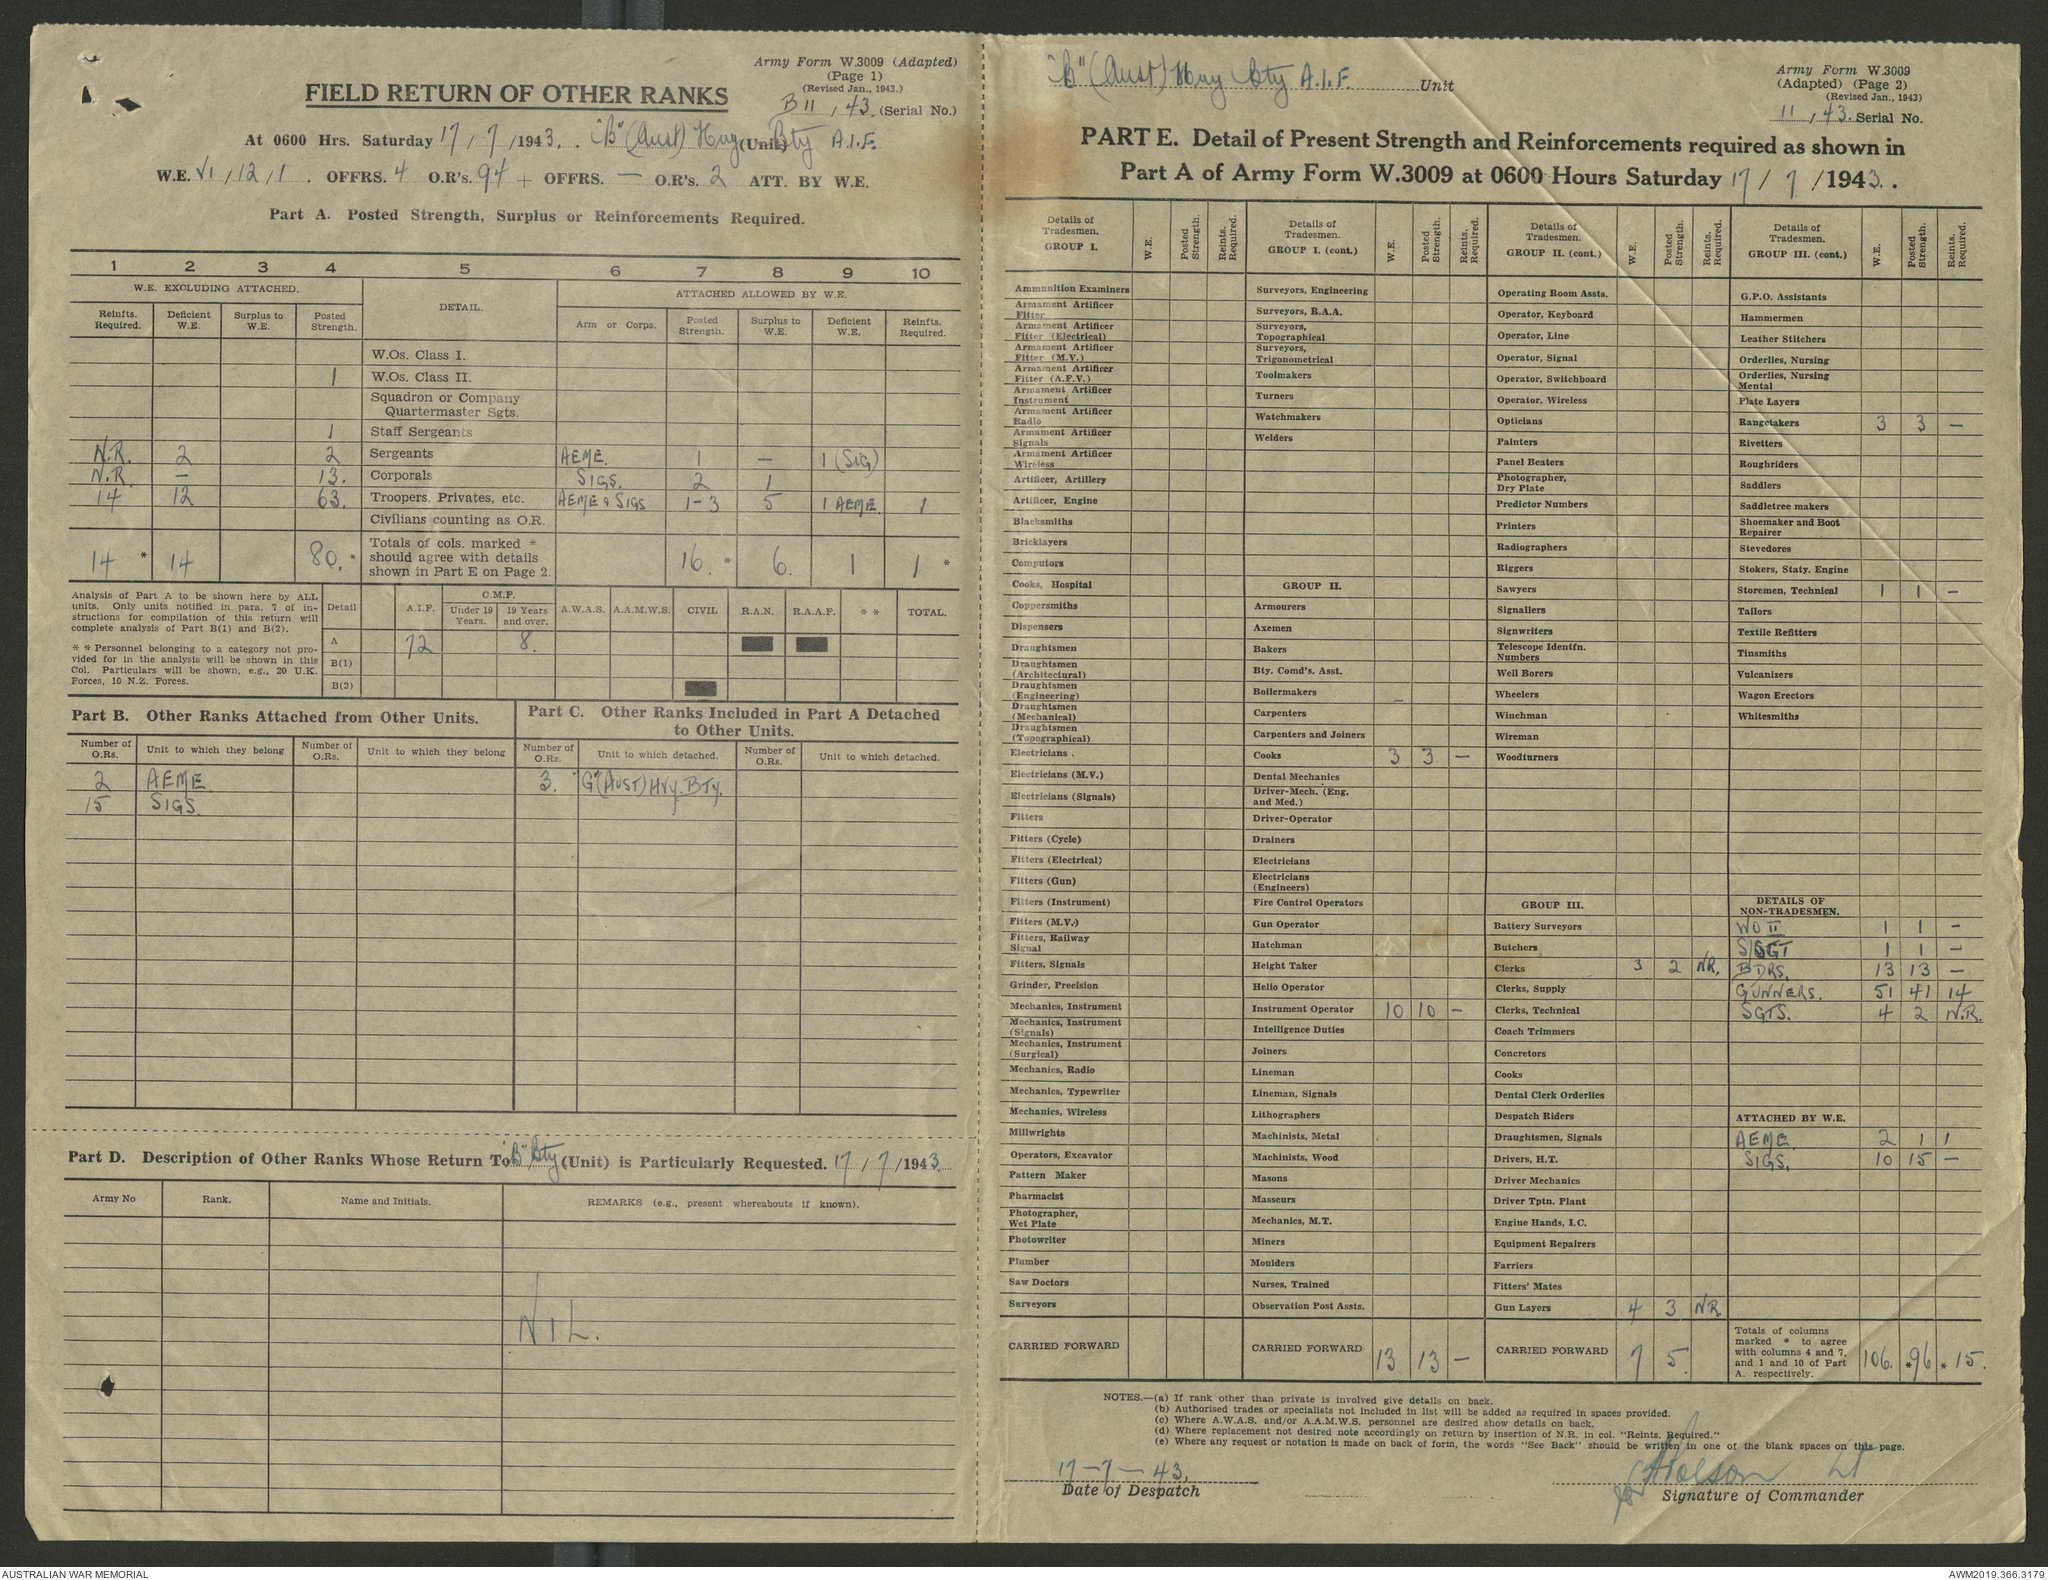 Army Form W.3009 (Adapted)
(Page 1)
(Revised Jan., 1943.)
B 11, 43. (Serial No.)
FIELD RETURN OF OTHER RANKS
At 0600 Hrs. Saturday 17/7/1943. "B" (Aust) Hvy (Unit) Bty A.I.F.
W.E. VI, 12, 1. OFFRS. 4 O.R's. 94 + OFFRS. — O.R's. 2 ATT. BY W.E.
Part A. Posted Strength, Surplus or Reinforcements Required.
1 2 3 4 5 6 7 8 9 10
W.E. EXCLUDING ATTACHED. DETAIL. ATTACHED ALLOWED BY W.E.
Reinfts. Required. Deficient W.E. Surplus to W.E. Posted Strength. Arm or Corps. Posted Strength. Surplus to W.E. Deficient W.E. Reinfts. Required.
W.Os. Class I.
1 W.Os. Class II.
Squadron or Company
Quartermaster Sgts.
1 Staff Sergeants
N.R. 2 2 Sergeants AEME. 1 — 1 (SIG)
N.R. — 13. Corporals SIGS. 2 1
14 12 63. Troopers, Privates, etc. AEME & SIGS 1-3 5 1 AEME. 1
Civilians counting as O.R.
14 * 14 80. * Totals of cols. marked * should agree with details shown in Part E on Page 2. 16. * 6. 1 1 *
Analysis of Part A to be shown here by ALL
units. Only units notified in para. 7 of in-
structions for compilation of this return will
complete analysis of Part B(1) and B(2).
* * Personnel belonging to a category not pro-
vided for in the analysis will be shown in this
Col. Particulars will be shown, e.g., 20 U.K.
Forces, 10 N.Z. Forces.
Detail A.I.F. C.M.F. Under 19 Years. 19 Years and over. A.W.A.S. A.A.M.W.S. CIVIL R.A.N. R.A.A.F. * * TOTAL.
A 72 8.
B(1)
B(2)
Part B. Other Ranks Attached from Other Units.
Number of O.Rs. Unit to which they belong Number of O.Rs. Unit to which they belong
2 AEME
15 SIGS.
Part C. Other Ranks Included in Part A Detached
to Other Units.
Number of O.Rs. Unit to which detached. Number of O.Rs. Unit to which detached.
3. "G" (AUST) HVY. BTY.
Part D. Description of Other Ranks Whose Return To "B" Bty (Unit) is Particularly Requested. 17/7/1943.
Army No Rank. Name and Initials. REMARKS (e.g., present whereabouts if known).
NIL.
"B" (Aust) Hvy Bty A.I.F. Unit
Army Form W.3009
(Adapted) (Page 2)
(Revised Jan., 1943)
11, 43. Serial No.
PART E. Detail of Present Strength and Reinforcements required as shown in
Part A of Army Form W.3009 at 0600 Hours Saturday 17/7/1943.
Details of Tradesmen. GROUP I. W.E. Posted Strength. Reints. Required.
Ammunition Examiners
Armament Artificer Fitter
Armament Artificer Fitter (Electrical)
Armament Artificer Fitter (M.V.)
Armament Artificer Fitter (A.F.V.)
Armament Artificer Instrument
Armament Artificer Radio
Armament Artificer Signals
Armament Artificer Wireless
Artificer, Artillery
Artificer, Engine
Blacksmiths
Bricklayers
Computors
Cooks, Hospital
Coppersmiths
Dispensers
Draughtsmen
Draughtsmen (Architectural)
Draughtsmen (Engineering)
Draughtsmen (Mechanical)
Draughtsmen (Topographical)
Electricians .
Electricians (M.V.)
Electricians (Signals)
Fitters
Fitters (Cycle)
Fitters (Electrical)
Fitters (Gun)
Fitters (Instrument)
Fitters (M.V.)
Fitters, Railway Signal
Fitters, Signals
Grinder, Precision
Mechanics, Instrument
Mechanics, Instrument (Signals)
Mechanics, Instrument (Surgical)
Mechanics, Radio
Mechanics, Typewriter
Mechanics, Wireless
Millwrights
Operators, Excavator
Pattern Maker
Pharmacist
Photographer, Wet Plate
Photowriter
Plumber
Saw Doctors
Surveyors
CARRIED FORWARD
Details of Tradesmen. GROUP I. (cont.) W.E. Posted Strength. Reints. Required.
Surveyors, Engineering
Surveyors, R.A.A.
Surveyors, Topographical
Surveyors, Trigonometrical
Toolmakers
Turners
Watchmakers
Welders
GROUP II.
Armourers
Axemen
Bakers
Bty. Comd's. Asst.
Boilermakers
Carpenters
Carpenters and Joiners
Cooks 3 3 —
Dental Mechanics
Driver-Mech. (Eng. and Med.)
Driver-Operator
Drainers
Electricians
Electricians (Engineers)
Fire Control Operators
Gun Operator
Hatchman
Height Taker
Helio Operator
Instrument Operator 10 10 —
Intelligence Duties
Joiners
Lineman
Lineman, Signals
Lithographers
Machinists, Metal
Machinists, Wood
Masons
Masseurs
Mechanics, M.T.
Miners
Moulders
Nurses, Trained
Observation Post Assts.
CARRIED FORWARD 13 13 —
Details of Tradesmen. GROUP II. (cont.) W.E. Posted Strength. Reints. Required.
Operating Room Assts.
Operator, Keyboard
Operator, Line
Operator, Signal
Operator, Switchboard
Operator, Wireless
Opticians
Painters
Panel Beaters
Photographer, Dry Plate
Predictor Numbers
Printers
Radiographers
Riggers
Sawyers
Signallers
Signwriters
Telescope Identfn. Numbers
Well Borers
Wheelers
Winchman
Wireman
Woodturners
GROUP III.
Battery Surveyors
Butchers
Clerks 3 2 NR.
Clerks, Supply
Clerks, Technical
Coach Trimmers
Concretors
Cooks
Dental Clerk Orderlies
Despatch Riders
Draughtsmen, Signals
Drivers, H.T.
Driver Mechanics
Driver Tptn. Plant
Engine Hands, I.C.
Equipment Repairers
Farriers
Fitters' Mates
Gun Layers 4 3 NR
CARRIED FORWARD 7 5
Details of Tradesmen. GROUP III. (cont.) W.E. Posted Strength. Reints. Required.
G.P.O. Assistants
Hammermen
Leather Stitchers
Orderlies, Nursing
Orderlies, Nursing Mental
Plate Layers
Rangetakers 3 3 —
Rivetters
Roughriders
Saddlers
Saddletree makers
Shoemaker and Boot Repairer
Stevedores
Stokers, Staty. Engine
Storemen, Technical 1 1 —
Tailors
Textile Refitters
Tinsmiths
Vulcanizers
Wagon Erectors
Whitesmiths
DETAILS OF
NON-TRADESMEN.
WO II 1 1 —
S/SGT 1 1 —
BDRS. 13 13 —
GUNNERS. 51 41 14
SGTS. 4 2 N.R.
ATTACHED BY W.E.
AEME. 2 1 1
SIGS. 10 15 —
Totals of columns marked * to agree with columns 4 and 7, and 1 and 10 of Part A. respectively. 106. *96 * 15.
NOTES.—(a) If rank other than private is involved give details on back.
(b) Authorised trades or specialists not included in list will be added as required in spaces provided.
(c) Where A.W.A.S. and/or A.A.M.W.S. personnel are desired show details on back.
(d) Where replacement not desired note accordingly on return by insertion of N.R. in col. "Reints. Required."
(e) Where any request or notation is made on back of form, the words "See Back" should be written in one of the blank spaces on this page.
17-7-43.
Date of Despatch
for Lt
Signature of Commander
AUSTRALIAN WAR MEMORIAL
AWM2019.366.3179